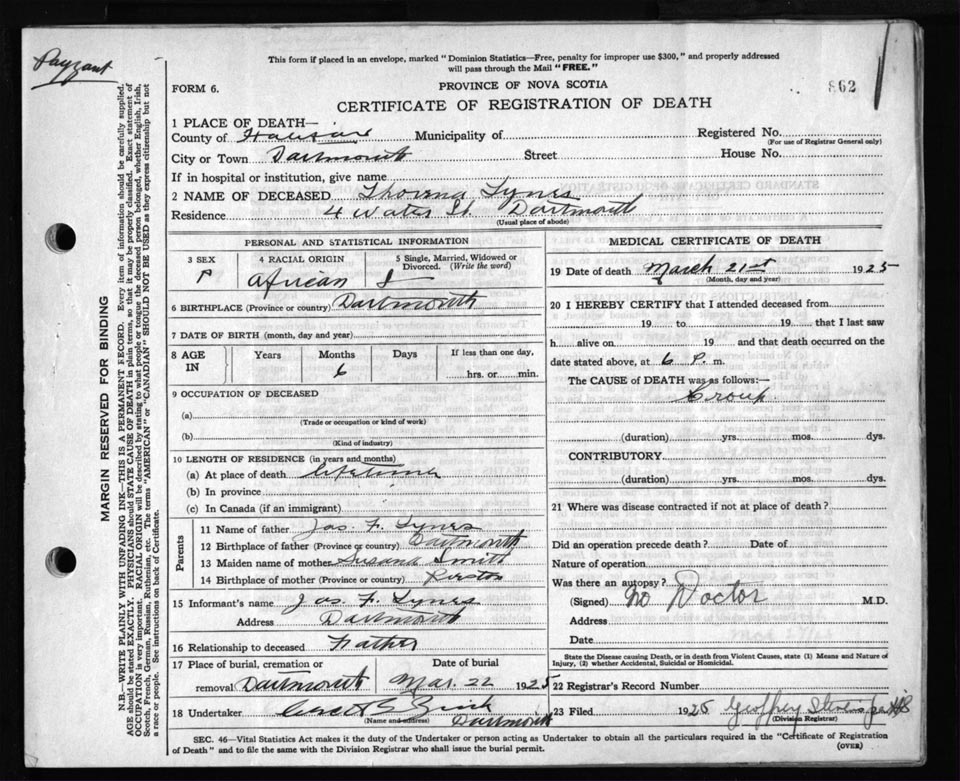 Payzant
This form if placed in an envelope, marked "Dominion Statistics—Free, penalty for improper use $300," and properly addressed
will pass through the Mail "FREE."
FORM 6.
PROVINCE OF NOVA SCOTIA
862
CERTIFICATE OF REGISTRATION OF DEATH
1 PLACE OF DEATH—
County of Halifax Municipality of Registered No.
(For use of Registrar General only)
City or Town Dartmouth Street House No.
If in hospital or institution, give name
2 NAME OF DECEASED Tynes
Residence 4 Water St. Dartmouth
(Usual place of abode)
PERSONAL AND STATISTICAL INFORMATION
3 SEX 4 RACIAL ORIGIN 5 Single, Married, Widowed or Divorced. (Write the word)
African S
6 BIRTHPLACE (Province or country) Dartmouth
7 DATE OF BIRTH (month, day and year)
8 AGE IN Years Months Days If less than one day,
6 hrs. or min.
9 OCCUPATION OF DECEASED
(a)
(Trade or occupation or kind of work)
(b)
(Kind of industry)
10 LENGTH OF RESIDENCE (in years and months)
(a) At place of death lifetime
(b) In province
(c) In Canada (if an immigrant)
Parents
11 Name of father Jas. F. Tynes
12 Birthplace of father (Province or country) Dartmouth
13 Maiden name of mother Susana Smith
14 Birthplace of mother (Province or country) Preston
15 Informant's name Jas. F. Tynes
Address Dartmouth
16 Relationship to deceased Father
17 Place of burial, cremation or Date of burial
removal Dartmouth Mar. 22 1925
18 Undertaker
(Name and address) Dartmouth
MEDICAL CERTIFICATE OF DEATH
19 Date of death March 21st 1925
(Month, day and year)
20 I HEREBY CERTIFY that I attended deceased from
19 to 19 that I last saw
h alive on 19 and that death occurred on the
date stated above, at 6 P. m.
The CAUSE of DEATH was as follows:—
Croup.
(duration) yrs. mos. dys.
CONTRIBUTORY
(duration) yrs. mos. dys.
21 Where was disease contracted if not at place of death?
Did an operation precede death? Date of
Nature of operation
Was there an autopsy?
(Signed) No Doctor M.D.
Address
Date
State the Disease causing Death, or in death from Violent Causes, state (1) Means and Nature of
Injury, (2) whether Accidental, Suicidal or Homicidal.
22 Registrar's Record Number
23 Filed 1925 Geoffrey
(Division Registrar)
SEC. 46—Vital Statistics Act makes it the duty of the Undertaker or person acting as Undertaker to obtain all the particulars required in the "Certificate of Registration
of Death" and to file the same with the Division Registrar who shall issue the burial permit.
(OVER)
MARGIN RESERVED FOR BINDING
N.B.—WRITE PLAINLY WITH UNFADING INK—THIS IS A PERMANENT RECORD. Every item of information should be carefully supplied.
AGE should be stated EXACTLY. PHYSICIANS should STATE CAUSE OF DEATH in plain terms, so that it may be properly classified. Exact statement of
OCCUPATION is very important. RACIAL ORIGIN will be described by stating to what people or tongue the deceased person belonged, whether English, Irish,
Scotch, French, German, Russian, Ruthenian, etc. The terms "AMERICAN" or "CANADIAN" SHOULD NOT BE USED as they express citizenship but not
a race or people. See instructions on back of Certificate.